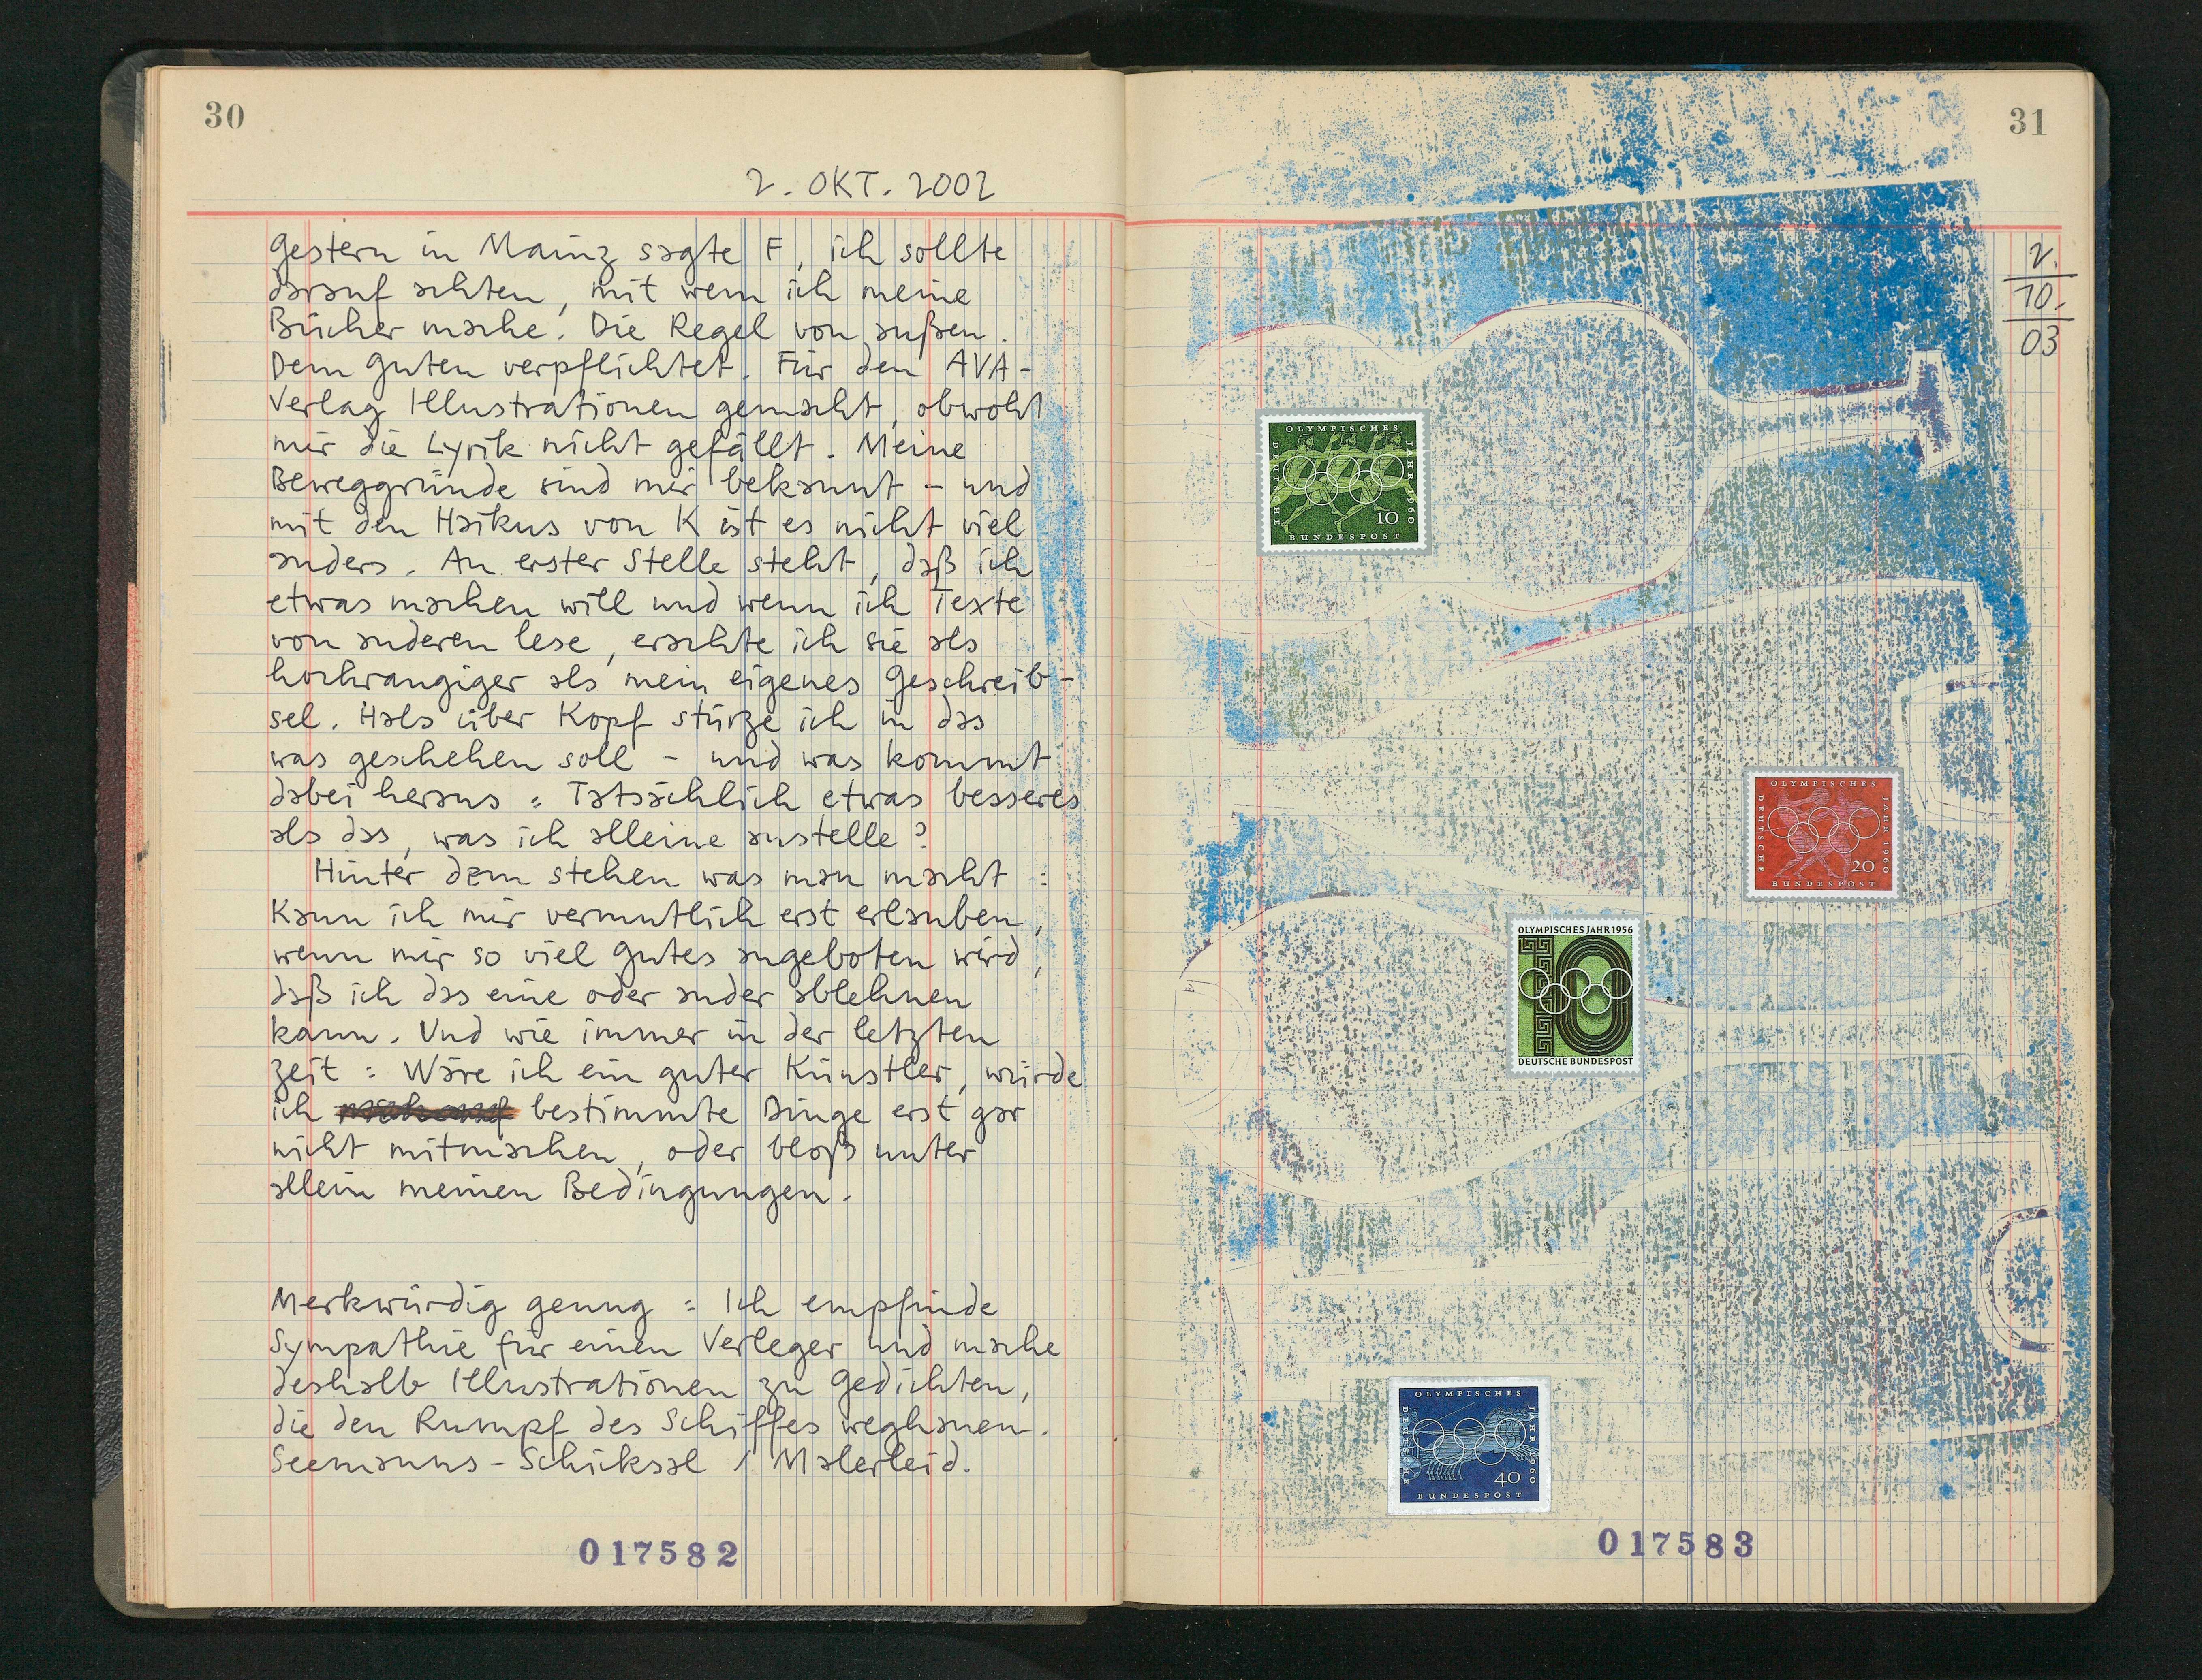 30
2. OKT. 2002
Gestern in Mainz sagte F, ich sollte
darauf achten, mit wem ich meine
Bücher mache. Die Regel von außen.
Dem Guten verpflichtet. Für den AVA-
Verlag Illustrationen gemacht, obwohl
mir die Lyrik nicht gefällt. Meine
Beweggründe sind mir bekannt – und
mit den Haikus von K ist es nicht viel
anders. An erster Stelle steht, daß ich
etwas machen will und wenn ich Texte
von anderen lese, erachte ich sie als
hochrangiger als mein eigenes Geschreib-
sel. Hals über Kopf stürze ich in das
was geschehen soll – und was kommt
dabei heraus: Tatsächlich etwas besseres
als das, was ich alleine anstelle?
Hinter dem stehen was man macht:
Kann ich mir vermutlich erst erlauben,
wenn mir so viel Gutes angeboten wird,
daß ich das eine oder ander ablehnen
kann. Und wie immer in der letzten
Zeit: Wäre ich ein guter Künstler, würde
ich bestimmte Dinge erst gar
nicht mitmachen, oder bloß unter
allein meinen Bedingungen.
Merkwürdig genug: Ich empfinde
Sympathie für einen Verleger und mache
deshalb Illustrationen zu Gedichten,
die den Rumpf des Schiffes weghauen.
Seemanns-Schicksal / Malerleid.
017582
31
2.
10.
03
OLYMPISCHES
JAHR 1960
DEUTSCHE
10
BUNDESPOST
OLYMPISCHES
JAHR 1960
DEUTSCHE
20
BUNDESPOST
OLYMPISCHES JAHR 1956
10
DEUTSCHE BUNDESPOST
OLYMPISCHES
JAHR 1960
DEUTSCHE
40
BUNDESPOST
017583